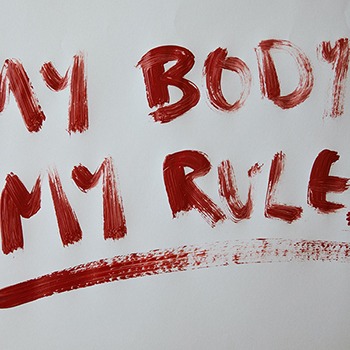 MY BODY
MY RULE